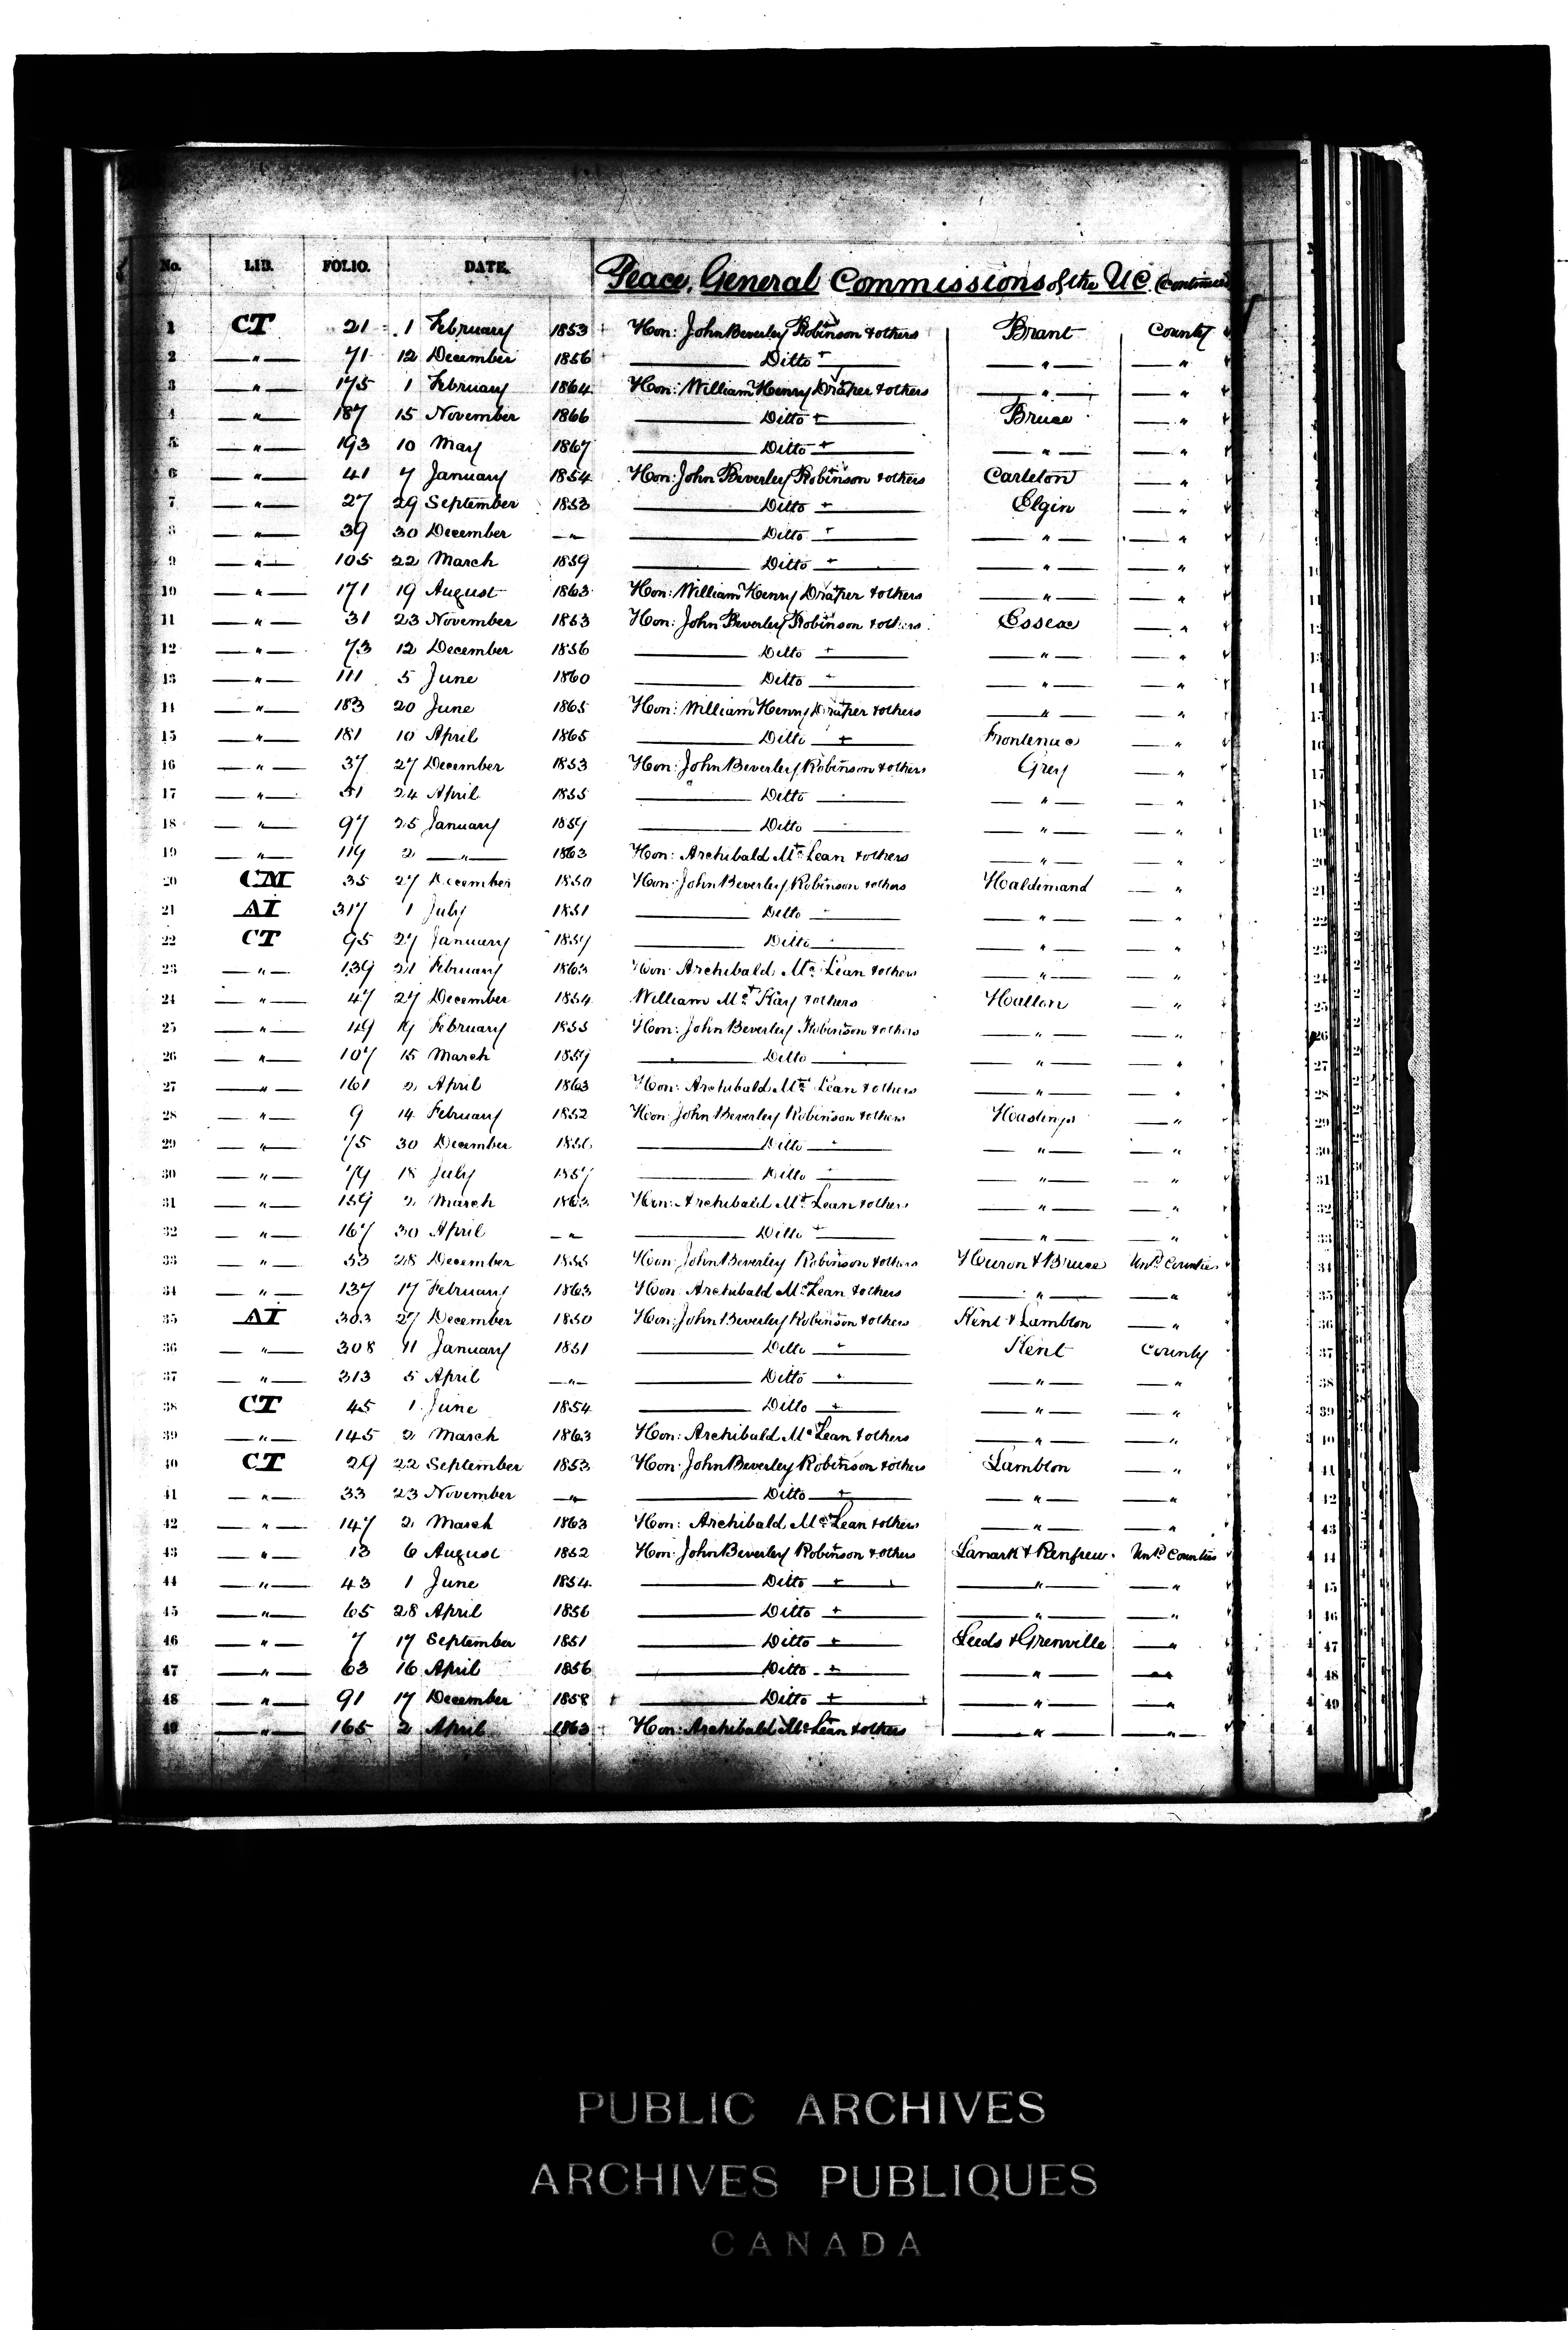 No. LIB. FOLIO. DATE. Peace, General Commissions of the U.C. (Continued)
1 CT 21 1 February 1853 Hon: John Beverley Robinson & others Brant County
2 — " — 71 12 December 1856 Ditto — " — — "
3 — " — 175 1 February 1864 Hon: William Henry Draper & others — " — — "
4 — " — 187 15 November 1866 Ditto Bruce — "
5 — " — 193 10 May 1867 Ditto — " — — "
6 — " — 41 7 January 1854 Hon: John Beverley Robinson & others Carleton — "
7 — " — 27 29 September 1853 Ditto Elgin — "
8 — " — 39 30 December — " — Ditto — " — — "
9 — " — 105 22 March 1859 Ditto — " — — "
10 — " — 171 19 August 1863 Hon: William Henry Draper & others — " — — "
11 — " — 31 23 November 1853 Hon: John Beverley Robinson & others Essex — "
12 — " — 73 12 December 1856 Ditto — " — — "
13 — " — 111 5 June 1860 Ditto — " — — "
14 — " — 183 20 June 1865 Hon: William Henry Draper & others — " — — "
15 — " — 181 10 April 1865 Ditto Frontenac — "
16 — " — 37 27 December 1853 Hon: John Beverley Robinson & others Grey — "
17 — " — 51 24 April 1855 Ditto — " — — "
18 — " — 97 25 January 1859 Ditto — " — — "
19 — " — 119 2 — " — 1863 Hon: Archibald McLean & others — " — — "
20 CM 35 27 December 1850 Hon: John Beverley Robinson & others Haldimand — "
21 AI 317 1 July 1851 Ditto — " — — "
22 CT 95 27 January 1859 Ditto — " — — "
23 — " — 139 21 February 1863 Hon: Archibald McLean & others — " — — "
24 — " — 47 27 December 1854 William McKay & others Halton — "
25 — " — 49 19 February 1855 Hon: John Beverley Robinson & others — " — — "
26 — " — 107 15 March 1859 Ditto — " — — "
27 — " — 161 2 April 1863 Hon: Archibald McLean & others — " — — "
28 — " — 9 14 February 1852 Hon: John Beverley Robinson & others Hastings — "
29 — " — 75 30 December 1856 Ditto — " — — "
30 — " — 79 18 July 1857 Ditto — " — — "
31 — " — 159 2 March 1863 Hon: Archibald McLean & others — " — — "
32 — " — 167 30 April — " — Ditto — " — — "
33 — " — 53 28 December 1855 Hon: John Beverley Robinson & others Huron & Bruce Untd Counties
34 — " — 137 17 February 1863 Hon: Archibald McLean & others — " — — "
35 AI 303 27 December 1850 Hon: John Beverley Robinson & others Kent & Lambton — "
36 — " — 308 11 January 1851 Ditto Kent County
37 — " — 313 5 April — " — Ditto — " — — "
38 CT 45 1 June 1854 Ditto — " — — "
39 — " — 145 2 March 1863 Hon: Archibald McLean & others — " — — "
40 CT 29 22 September 1853 Hon: John Beverley Robinson & others Lambton — "
41 — " — 33 23 November — " — Ditto — " — — "
42 — " — 147 2 March 1863 Hon: Archibald McLean & others — " — — "
43 — " — 13 6 August 1852 Hon: John Beverley Robinson & others Lanark & Renfrew Untd Counties
44 — " — 43 1 June 1854 Ditto — " — — "
45 — " — 65 28 April 1856 Ditto — " — — "
46 — " — 7 17 September 1851 Ditto Leeds & Grenville — "
47 — " — 63 16 April 1856 Ditto — " — — "
48 — " — 91 17 December 1858 Ditto — " — — "
49 — " — 165 2 April 1863 Hon: Archibald McLean & others — " — — "
PUBLIC ARCHIVES
ARCHIVES PUBLIQUES
CANADA